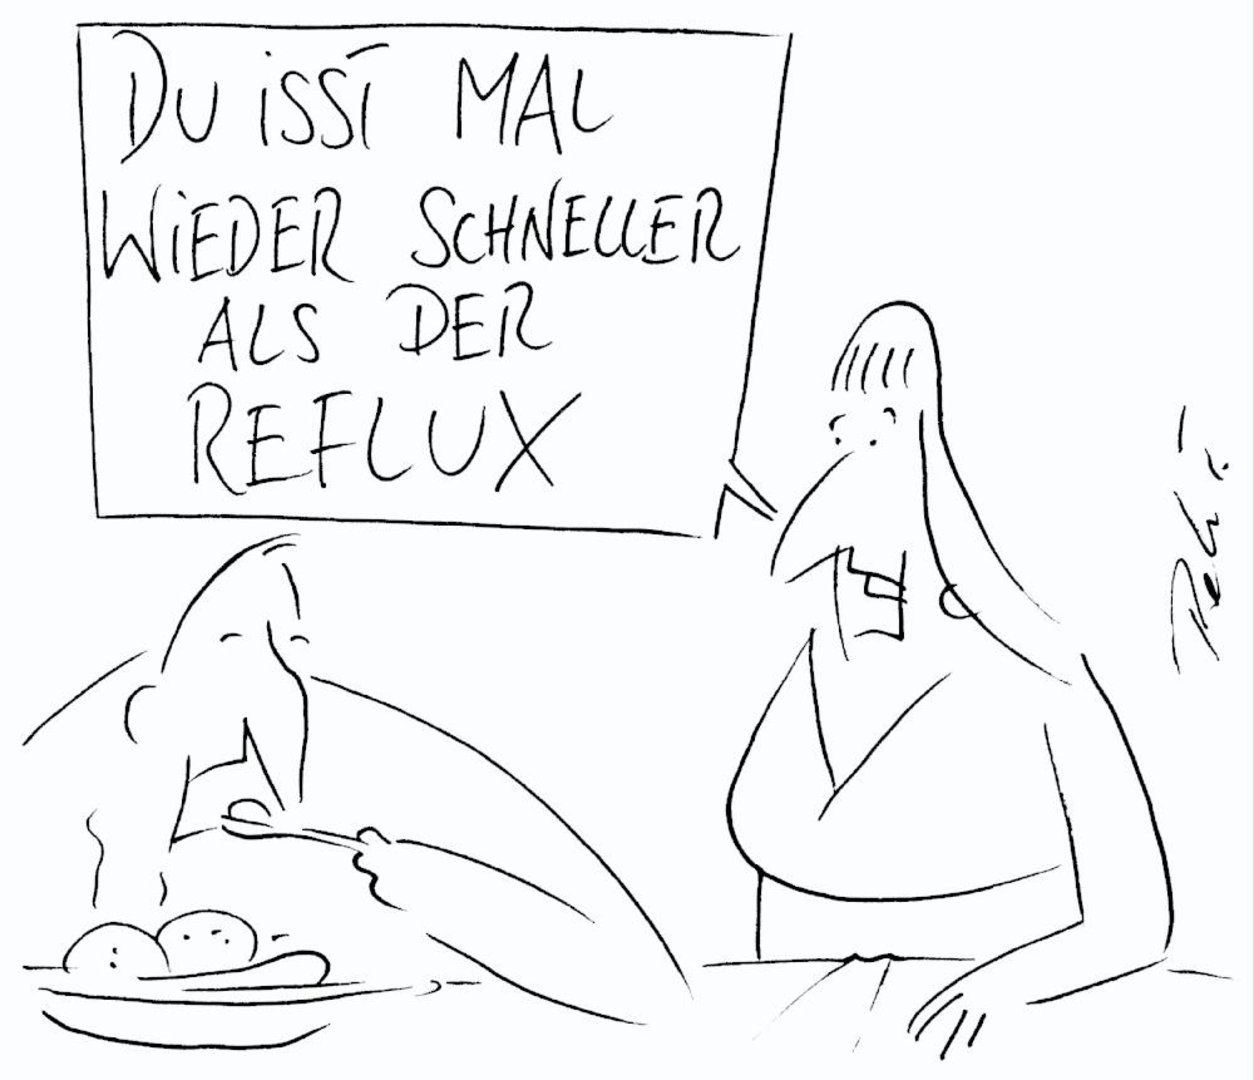 DU iSST MAL
WiEDER SCHNELLER
ALS DER
REFLUX